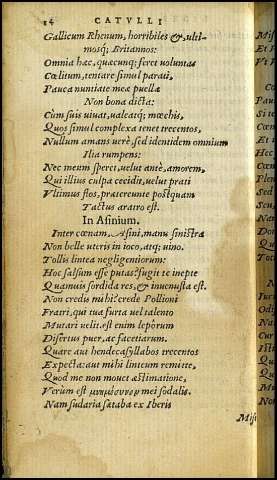 14 CATVLLI
Gallicum Rhenum, horribiles &, ulti-
mosq; Britannos:
Omnia hæc, quæcunq; feret voluntas
Cœlitum, tentare simul parati,
Pauca nuntiate meæ puellæ
Non bona dicta:
Cum suis uiuat, ualeatq; mœchis,
Quos simul complexa tenet trecentos,
Nullum amans uerè, sed identidem omnium
Ilia rumpens:
Nec meum speret, uelut antè, amorem,
Qui illius culpa cecidit, uelut prati
Vltimus flos, prætereunte postquam
Tactus aratro est.
In Asinium.
Inter cœnam, Asini, manu sinistra
Non belle uteris in ioco, atq; uino.
Tollis lintea negligentiorum:
Hoc salsum esse putas? fugit te inepte
Quamuis sordida res, & inuenusta est.
Non credis mihi? crede Pollioni
Fratri, qui tua furta uel talento
Mutari uelit. est enim leporum
Disertus puer, ac facetiarum.
Quare aut hendecasyllabos trecentos
Expecta: aut mihi linteum remitte,
Quod me non mouet æstimatione,
Verùm est μνημόσυνον mei sodalis.
Nam sudaria sætaba ex Iberis
Misi